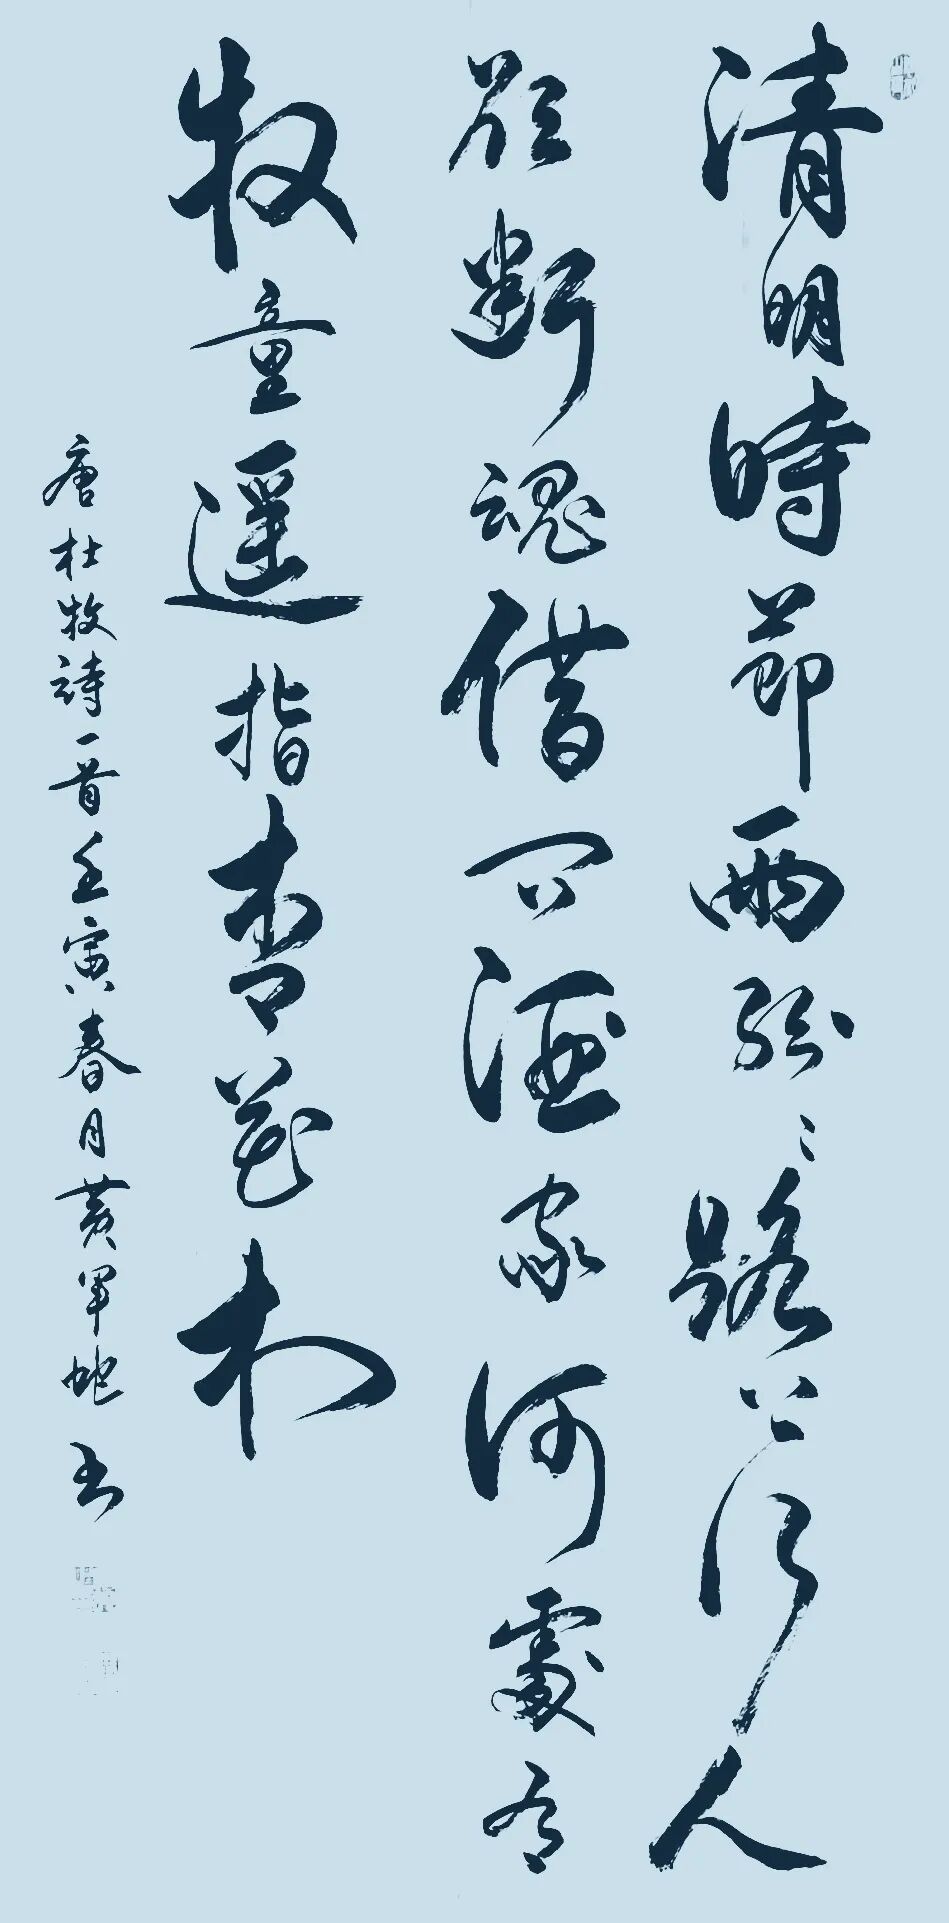 清明時節雨紛々路上行人
欲斷魂借问酒家何處有
牧童遥指杏花村
唐杜牧詩一首壬寅春月黄軍虵书